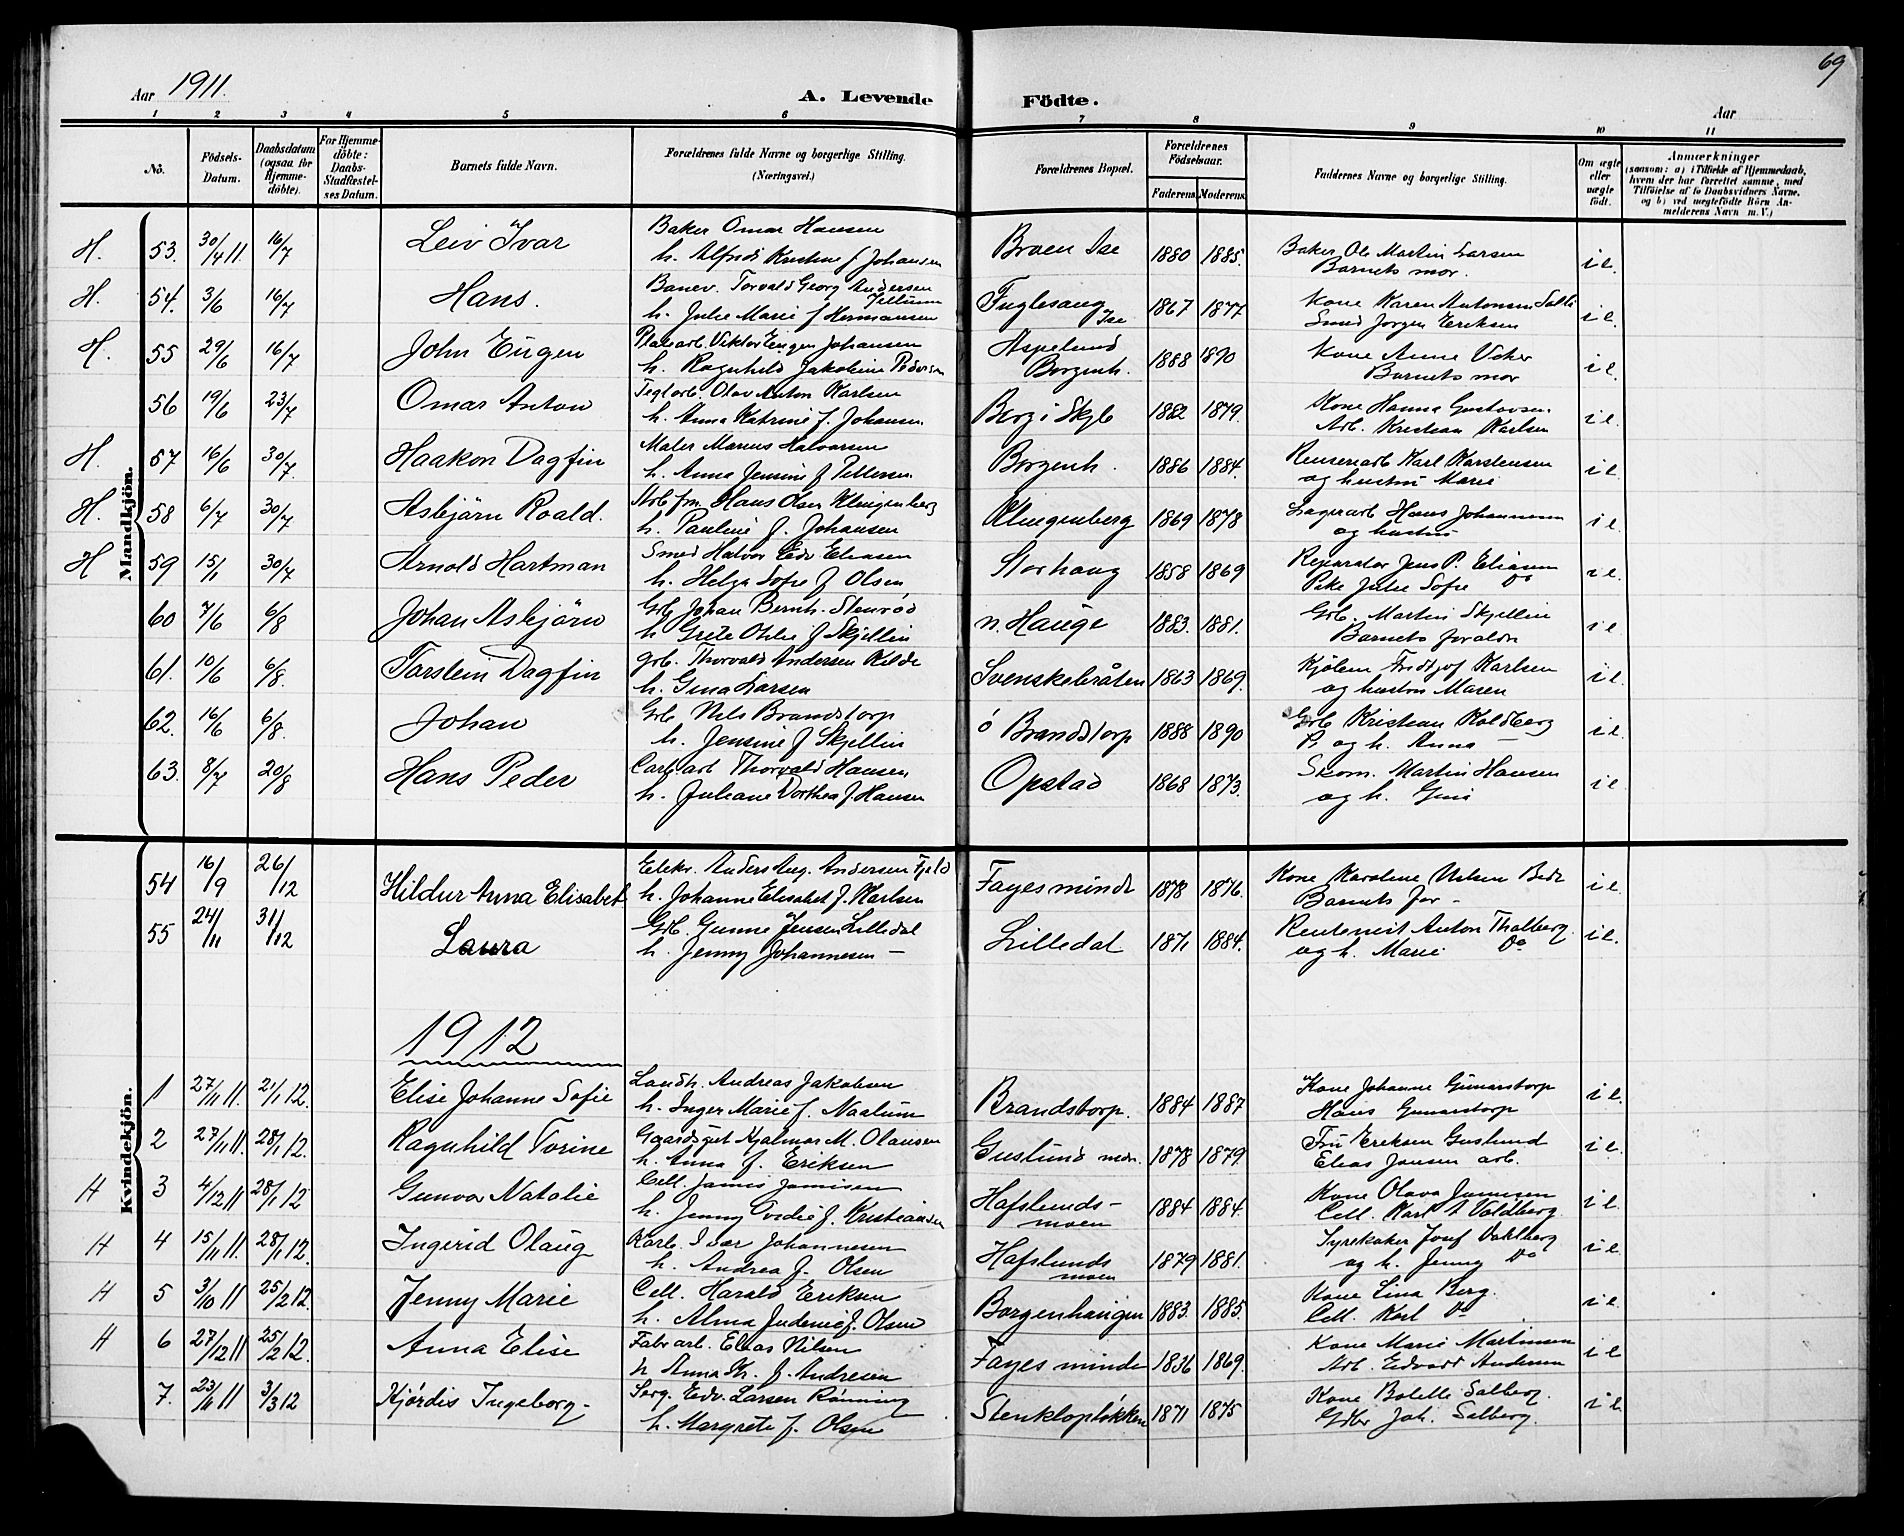 69
Aar 1911.
A. Levende Födte.
Aar
1 2 3 4 5 6 7 8 9 10 11
No.
Födsels-Datum.
Daabsdatum (ogsaa for Hjemme-döbte).
For Hjemme-döbte: Daabs-Stadfæstel-ses Datum.
Barnets fulde Navn.
Forældrenes fulde Navne og borgerlige Stilling. (Næringsvei.)
Forældrenes Bopæl.
Forældrenes Födselsaar.
Faderens Moderens
Faddernes Navne og borgerlige Stilling.
Om ægte eller uægte födt.
Anmærkninger
(saasom: a) i Tilfælde af Hjemmedaab,
hvem der har forrettet samme, med
Tilföielse af to Daabsvidners Navne.
og b) ved uægtefödte Börn An-
melderens Navn m. V.)
Mandkjön.
H. 53. 30/4 11. 16/7 Leiv Ivar Baker Omar Hansen Braen Ise 1880 1885. Baker Ole Martin Larsen i e.
h. Alfride Kristine f Johansen Barnets mor.
H. 54. 3/6 16/7 Hans. Banev. Torvald Georg Andersen Fuglesang 1867 1877 Kone Karen Antonsen i e.
h. Julie Marie f Hermansen Ise Smed Jørgen Eriksen
H. 55 29/6 16/7 John Eugen Viktor Eugen Johansen Aspelund 1888 1890 Kone Anna i e.
h. Ragnhild Jakobine Pedersen Borgenh. Barnets mor
56 19/6 23/7 Omar Anton Teglarb. Olav Anton Karlsen Borg i Skjb 1882 1879. Kone Hanna Gustavsen. i e.
h. Anna Katrine f. Johansen Arb. Kristian Karlsen
H. 57 16/6 30/7 Haakon Dagfin Maler Marius Halvorsen Borgenh. 1886 1884. Karl Karstensen i e.
h. Anna Jensine f Pettersen og hustru Marie
H. 58 6/7 30/7 Asbjörn Roald. Hans Olsen Klingenberg Klingenberg 1869 1878 Lagerarb Hans Johannesen i e.
h. Pauline f. Johansen og hustru
H 59 15/1 30/7 Arnold Hartman Smed Halvor Edv Eliasen Storhaug 1858 1869 Reparatør Jens P. Eliasen i e.
h. Helga Sofie f Olsen Pike Julie Sofie Do
60 7/6 6/8 Johan Asbjörn Grb. Johan Bernh. Stenrød n. Hauge 1883. 1881. Grb. Martin Skjellin i e.
h Grete Otilie f Skjellin Barnets foreldre
61. 10/6 6/8. Torstein Dagfin Grb. Thorvald Andersen Kilde Svenskebråten 1863 1869. Kjølem Fridtjof Karlsen i e.
h. Gina Larsen og hustru Maren
62. 16/6 6/8. Johan Grb Nils Brandstorp ö Brandstorp 1888 1890 Grb Kristian Koldberg i e.
h. Jensine f Skjellin og h. Anna
63. 8/7 20/8 Hans Peder Thorvald Hansen Opstad 1868 1873. Skom. Martin Hansen i e.
h. Juliane Dorthea f. Hansen og h. Gina
Kvindekjön.
54 16/9 26/12 Hildur Anna Elisabet Elekr. Anders Aug. Andersen Fjeld Fayesminde 1878 1876. Kone Karoline Nilsen i e.
h. Johanne Elisabet f. Karlsen Barnets far -
55 24/11 31/12 Laura Grb. Gunne Jensen Lilledal Lilledal 1871 1884. Anton Thalberg. i e.
h. Jenny Johannesen - og h. Marie Do
1912
1 27/11 11. 21/1 12. Elise Johanne Sofie Landh. Andreas Jakobsen Brandstorp. 1884 1887 Kone Johanne Gunarstorp i e.
h. Inger Marie f. Naalum Hans Gunarstorp
2 27/11 11. 28/1 12. Ragnhild Torine Hjalmar M. Olausen Guslund 1878 1879. Fru Eriksen Guslund i e.
h. Anna f. Eriksen Elias Jansen arb.
H 3 4/12 11 28/1 12 Gunvor Natalie Cell. James Jamisen Hafslunds- 1884 1884. Kone Olava Jamisen i e.
h. Jenny f. Kristiansen moen Cell. Karl A Voldberg.
H 4 15/11 11. 28/1 12. Ingerid Olaug Karb. Ivar Johannesen Hafslunds 1879 1881. Syrekoker Josef Dahlberg i e.
h. Andrea f. Olsen moen og h. Jenny Do
H 5 3/10 11 25/2 12. Jenny Marie Cell. Harald Eriksen Borgenhaugen 1883. 1885. Kone Lina Berg. i e.
h. Alma f. Olsen Cell. Karl Do
H 6 27/12 11 25/2 12. Anna Elise Fabr arb. Elias Nilsen Fayes minde 1869. Kone Marie Martinsen i e
h Anna Kr. f. Andresen Arb. Edvard Andersen
7. 23/11 11 3/3 12 Hjördis Ingeborg - Edv. Larsen Rønning Stenkloplökken 1871 1875 Kone Bolette Solberg. i e.
h. Margrete f. Olsen Gdbr Joh. Solberg.